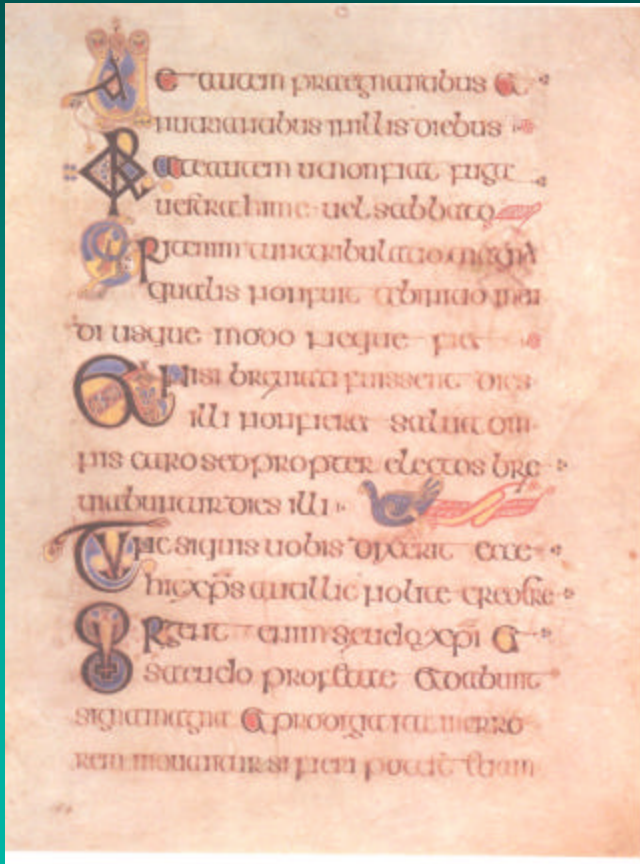 Uae autem praegnantibus et
nutriantibus in illis diebus
Orate autem ut non fiat fuga
uestra hime uel sabbato
Erit enim tunc tribulatio magna
qualis non fuit ab initio mun
di usque modo neque fiet
Et nisi breuiati fuissent dies
illi non fieret salua om
nis caro sed propter electos bre
uiabuntur dies illi
Tunc si quis uobis dixerit ecce
hic xps aut illic nolite credere
enim seudo xpi et
seudo profetae et dabunt
signa magna et prodigia ita ut in erro
rem si fieri potest etiam